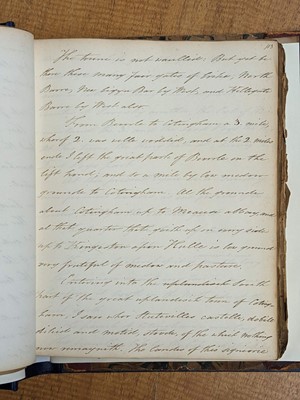 The toune is not waullid. But yet be
there these many fair gates of brike, North
Barre, New bigyn Bar by West, and Kellegate
Barre by West also.
From Beverle to Cotingham a 3. miles,
wherof 2. was welle wodded, and at the 2. miles
ende I left the great park of Beverle on the
left hond, and so a mile by low medow
grounde to Cotingham. Al the grounde
about Cotingham up to Meaux abbay, and
al that quarter that lyith up on every side
up to Kingeston apon Hulle is low ground
very fruteful of medow and pasture.
Entering into the uplandisch South
part of the great uplandisch town of Coting
ham, I saw wher Stutevilles castelle, dobill
dikid and motid, stoode, of the which nothing
now remaynith. The landes of this signiorie